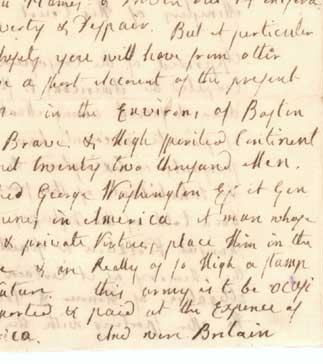 Names
verty & Despair. But a particular
you will have from other
e a short Account of the present
in the Environs of Boston
Brave & High spirited Continent
ut twenty two thousand Men.
ed George Washington Esqr a Gen
in America a man whose
& private Virtues, place Him in the
e & are Really of so High a stamp
ature. this army is to be occasi
ported & paid at the Expence of
rica. And were Britain